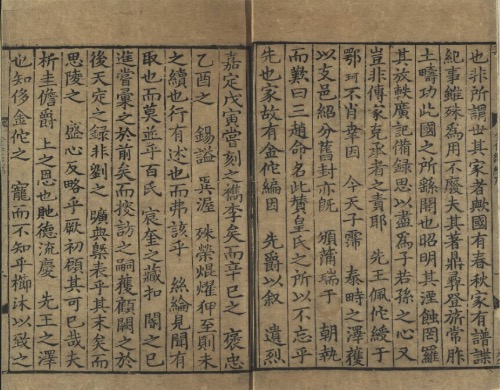 也非所謂世其家者歟國有春秋家有譜諜
紀事雖殊為用不廢夫其著鼎彝登旂常胙
土疇功此國之所繇開也昭明其湮蝕罔羅
其放軼廣記備録思以盡為子若孫之心又
豈非傳家克承者之責耶 先王佩 綬于
鄂珂不肖幸因 今天子霈 泰畤之澤獲
以支邑紹分舊封亦旣 頒蒲瑞于 朝執
而歎曰三趙命名此贊皇氏之所以不忘乎
先也家故有金佗編因 先爵以叙 遺烈
嘉定戊寅嘗刻之檇李矣而辛巳之 褒忠
乙酉之 錫謚 異渥 殊榮焜燿狎至則未
之續也行有述也而弗該乎 絲綸見聞有
取也而莫並乎百氏 宸奎之藏扣 閽之已
進嘗彙之於前矣而搜訪之嗣獲顧闕之於
後天定之録非劉之 曠典槩表乎其末矣而
思陵之 盛心反略乎厥初顧其可已哉夫
析圭儋爵 上之恩也貤德流慶 先王之澤
也知侈金佗之 寵而不知乎櫛沐以致之